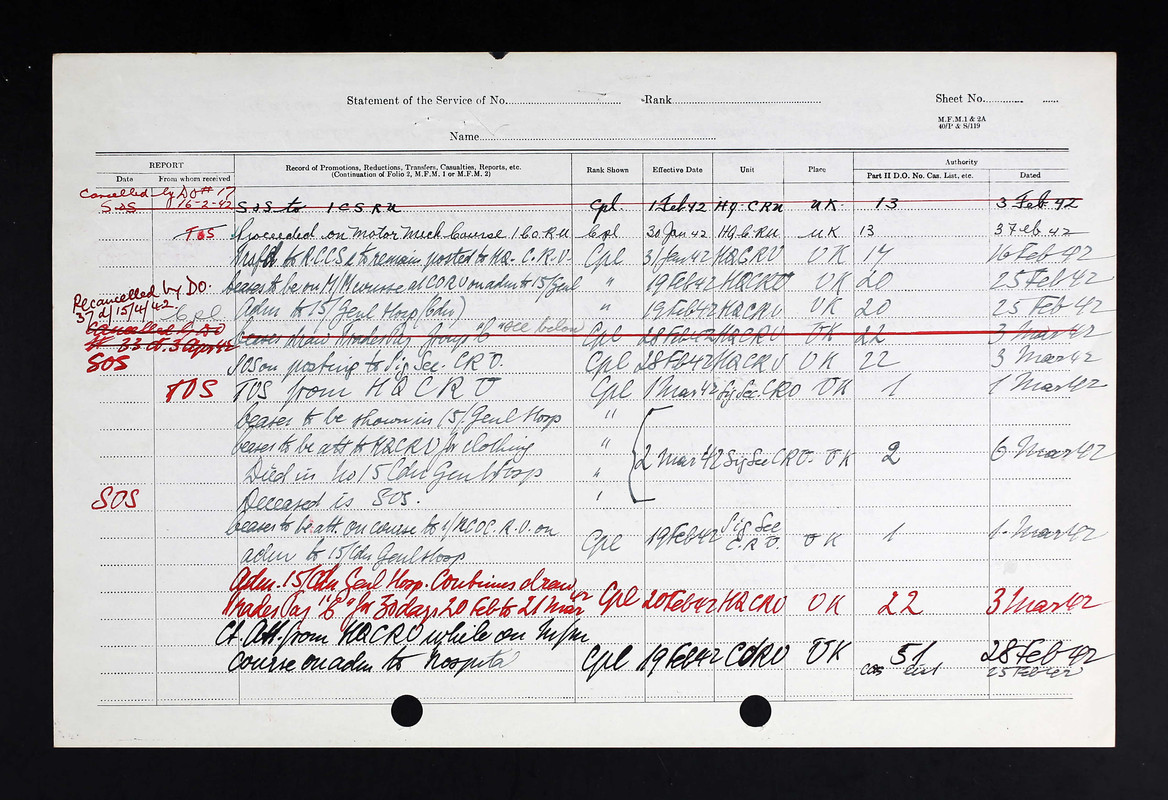 Statement of the Service of No. Rank Sheet No.
M.F.M. 1 & 2A
40/P & S/119
Name
REPORT
Date From whom received
Record of Promotions, Reductions, Transfers, Casualties, Reports, etc.
(Continuation of Folio 2, M.F.M. 1 or M.F.M. 2)
Rank Shown Effective Date Unit Place
Authority
Part II D.O. No. Cas. List, etc. Dated
Cancelled by DO # 17
SOS 16-2-42 SOS to 1 C S R U Cpl 1 Feb 42 HQ. C R U UK. 13 3 Feb. 42
TOS Proceeded on Motor Mech Course 1 C.O.R.U Cpl 30 Jan 42 HQ C.R.U UK 13 3 Feb 42
to R.C.C.S to remain posted to HQ. C.R.U. Cpl 31 Jan 42 HQCRU UK 17 16 Feb 42
ceases to be on M/M course at CORU on adm to 15/Genl " 19 Feb 42 HQCRU UK 20 25 Feb 42
Recancelled by DO.
37 d/15/4/42
Cpl Adm to 15/Genl Hosp (Cdn) " 19 Feb 42 HQCRU UK 20 25 Feb 42
Cancelled by DO
# 33 d. 3 Apr 42 ceases draw Trades Pay Group "C" "see below" Cpl 28 Feb 42 HQCRU UK 22 3 Mar 42
SOS SOS on posting to Sig Sec. C R U. Cpl 28 Feb 42 HQCRU UK 22 3 Mar 42
TOS TOS from H Q C R U Cpl 1 Mar 42 Sig Sec. CRU UK 1 1 Mar 42
ceases to be shown in 15/Genl Hosp "
ceases to be att to HQCRU for clothing " 2 Mar 42 Sig Sec CRU. UK 2 6 Mar 42
Died in No 15 Cdn Gen Hosp "
SOS Deceased is SOS. "
ceases to be att on course to 1/ C.O.R.U. on
adm to 15/Cdn Genl Hosp Cpl 19 Feb 42 Sig Sec C.R.U. UK 1 1 Mar 42
Adm. 15/Cdn Genl Hosp. Continues draw
Trades Pay "C" for 30 days 20 Feb to 21 Mar 42 Cpl 20 Feb 42 HQCRU UK 22 3 Mar 42
Att. from HQCRU while on M/M
course on adm to Hospital Cpl 19 Feb 42 CORU UK 51 28 Feb 42
cas list 25 Feb 42